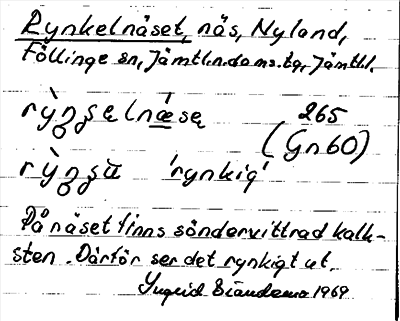 Rynkelnäset, näs, Nyland,
Föllinge sn, Jämtln.doms.tg, Jämtl.l.
rỳŋʒęlnǽsę 265
(Gn60)
rỳŋʒù̈ 'rynkig'
På näset finns söndervittrad kalk-
sten. Därför ser det rynkigt ut.
Ingrid 1969